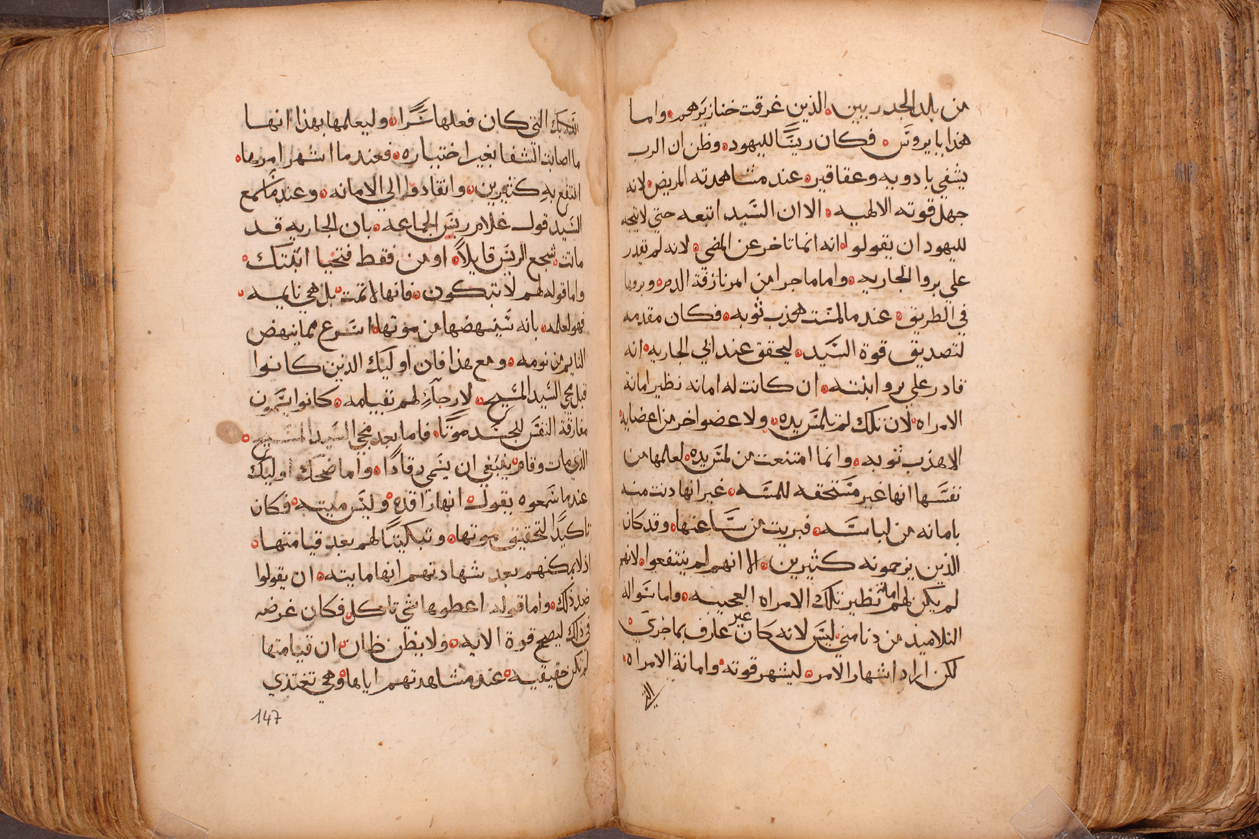 من بلد الجدريين الذين غرقت خنازيرهم واما
هذا يايروس فكان ريسا لليهود وظن ان الرب
يشفي بادويه وعقاقير عند مشاهدته المريض لانه
جهل قوته الالهيه الا ان السيد اتبعه حتى لا يتجه
لليهود ان يقولوا انه انما تاخر عن المضي لانه لم يقدر
على برو الجاريه واما ما جرا من امر نازفة الدم وبروها
في الطريق عند ما لمست هدب ثوبه فكان مقدمه
لتصديق قوة السيد ليحقق عند ابي الجاريه انه
قادر على برو ابنته ان كانت له امانه نظير امانة
الامراه لان تلك لم تلمس يده ولا عضوا اخر من اعضايه
الا هدب ثوبه وانما امتنعت من لمس يده لعلمها من
نفسها انها غير مستحقه للمسه غير انها دنت منه
بامانه من لباسه فبريت من ساعتها وقد كان
الذين يزحمونه كثيرين الا انهم لم ينتفعوا لانهم
لم يكن لهم امانه نظير تلك الامراه العجيبه واما سواله
التلاميد من دنا مني ليس لانه كان غير عارف بما جرى
لكن اراد اشهار الامر ليشهر قوته وامانة الامراه
التي كان فعلها سرا وليعلمها بهذا انها
ما اصابت الشفا بغير اختياره فعندما اشهر امرها
انتفع به كثيرين وانقادوا الى الامانه وعند ما سمع
السيد قول غلام ريس الجماعه بان الجاريه قد
ماتت شجع الريس قايلا اومن فقط فتحيا ابنتك
واما قوله لهم لا تبكون فانها لم تمت بل هي نايمه
فهو لعلمه بانه سينهضها من موتها اسرع مما ينهض
النايم من نومه ومع هذا فان اوليك الدين كانوا
قبل مجي السيد المسيح لا رجاء لهم بقيامه كانوا يسمون
مفارقة النفس للجسد موتا فاما بعد مجي السيد المسيح
الذي مات وقام ينبغي ان يسمى رقادا واما ضحك اوليك
عندما سمعوه يقول انها راقده وليس ميته فكان
تاكيدا لتحقيق موتها وتبكيتا لهم بعد قيامتها
اذ لا يمكنهم بعد شهادتهم انها مايته ان يقولوا
ضد ذلك واما قوله اعطوها شي تاكل فكان غرضه
في ذلك ليصح قوة الايه ولا يظن ظان ان قيامتها
لم تكن حقيقيه عند مشاهدتهم اياها وهي تغتذي
147